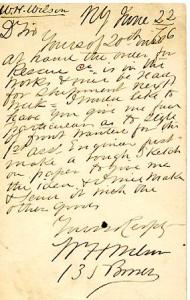 W. H. Wilson
NY June 22
Dr Sir
Yours of 20th inst 06
at hand the order for
Rescue Co is in the
Works & must be ready
for Shipment next
Week I would like to
have you give me full
Particulars as to Style
of wanted for the
1st Asst Engineer just
make a rough Sketch
on paper to give me
the idea & I will make
& Send it with the
other goods
Yours Respy
W H Wilson
135